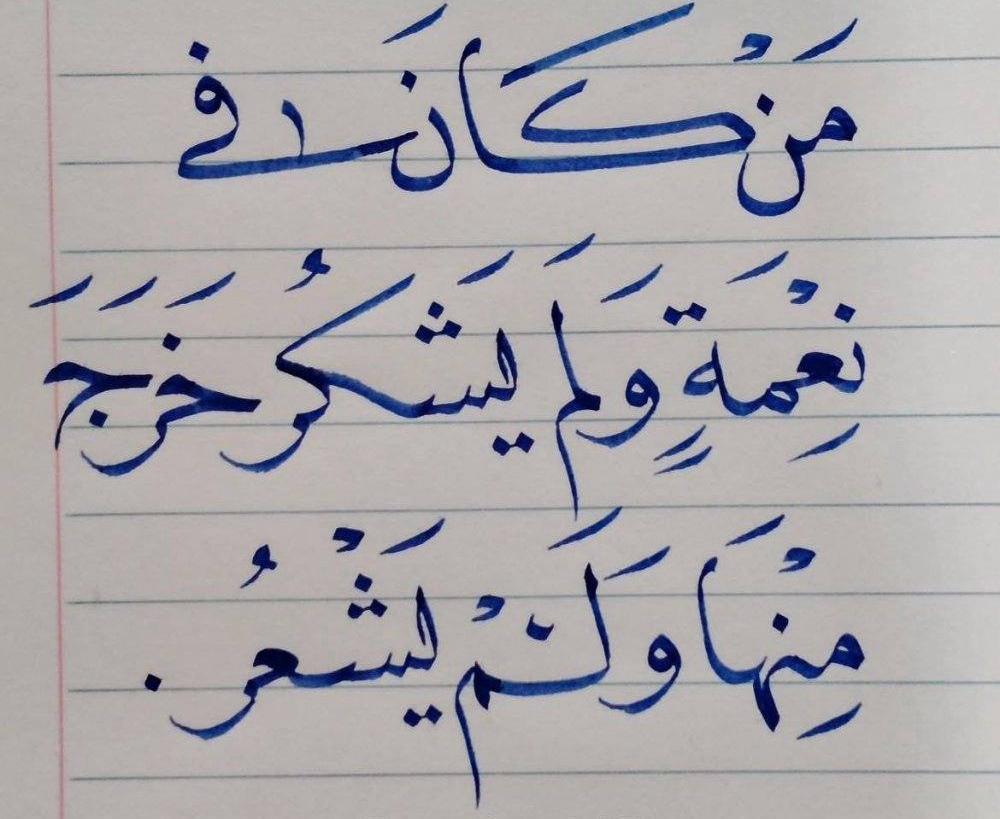 مَنْ كَانَ فی
نِعْمَةٍ وَلَم يَشَكُر خَرَجَ
مِنْهَا وَلَمْ يَشْعُر.